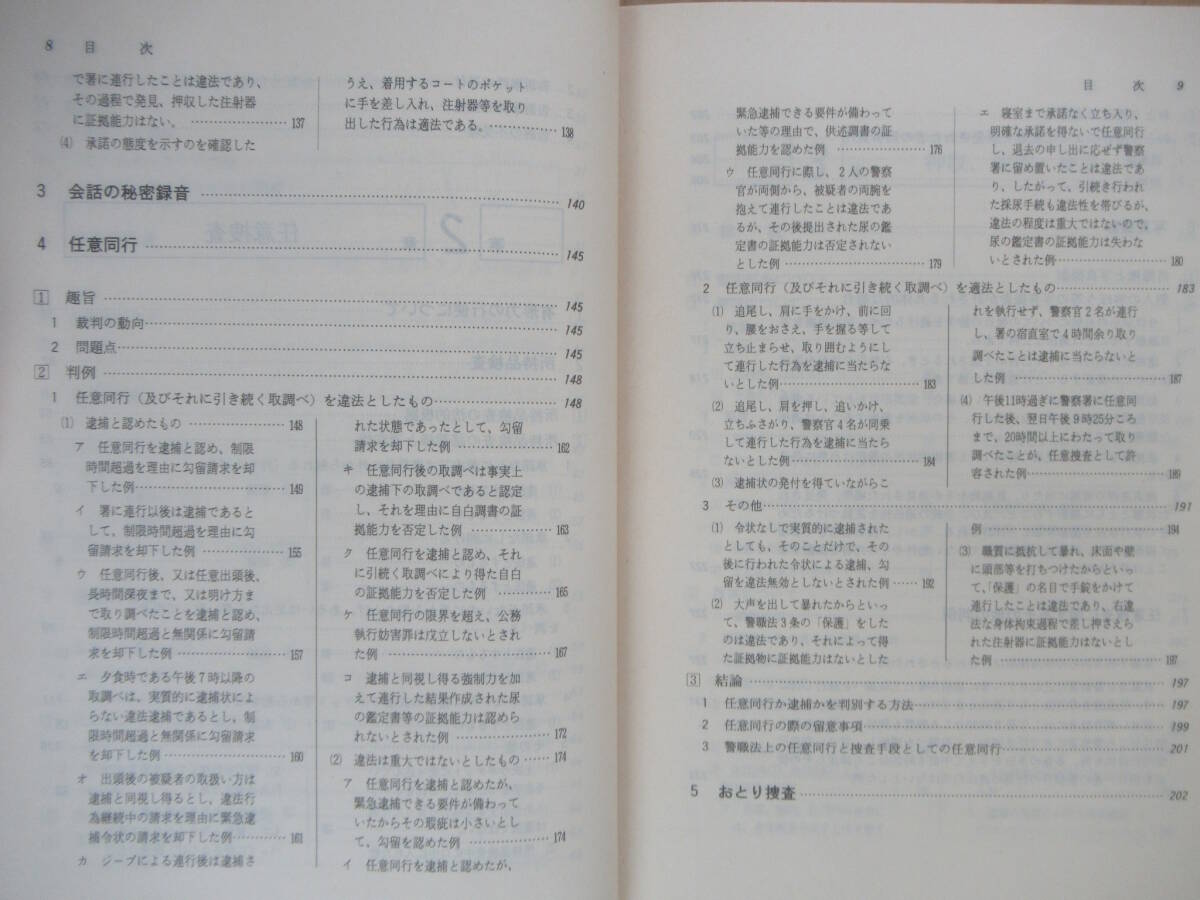 8 目 次
で署に連行したことは違法であり、
その過程で発見、押収した注射器
に証拠能力はない。 …………… 137
(4) 承諾の態度を示すのを確認した
うえ、着用するコートのポケット
に手を差し入れ、注射器等を取り
出した行為は適法である。…………138
3 会話の秘密録音 …………… 140
4 任意同行 …………… 145
1 趣旨 …………… 145
1 裁判の動向…………… 145
2 問題点…………… 145
2 判例 …………… 148
1 任意同行（及びそれに引き続く取調べ）を違法としたもの…………… 148
(1) 逮捕と認めたもの …………… 148
ア 任意同行を逮捕と認め、制限
時間超過を理由に勾留請求を却
下した例…………… 149
イ 署に連行以後は逮捕であると
して、制限時間超過を理由に勾
留請求を却下した例 …………… 155
ウ 任意同行後、又は任意出頭後、
長時間深夜まで、又は明け方ま
で取り調べたことを逮捕と認め、
制限時間超過と無関係に勾留請
求を却下した例 …………… 157
エ 夕食時である午後7時以降の
取調べは、実質的に逮捕状によ
らない違法逮捕であるとし、制
限時間超過と無関係に勾留請求
を却下した例 …………… 160
オ 出頭後の被疑者の取扱い方は
逮捕と同視し得るとし、違法行
為継続中の請求を理由に緊急逮
捕令状の請求を却下した例………… 161
カ ジープによる連行後は逮捕さ
れた状態であったとして、勾留
請求を却下した例 …………… 162
キ 任意同行後の取調べは事実上
の逮捕下の取調べであると認定
し、それを理由に自白調書の証
拠能力を否定した例 …………… 163
ク 任意同行を逮捕と認め、それ
に引続く取調べにより得た自白
の証拠能力を否定した例 …………… 165
ケ 任意同行の限界を超え、公務
執行妨害罪は成立しないとされ
た例 …………… 167
コ 逮捕と同視し得る強制力を加
えて連行した結果作成された尿
の鑑定書等の証拠能力は認めら
れないとされた例 …………… 172
(2) 違法は重大ではないとしたもの …… 174
ア 任意同行を逮捕と認めたが、
緊急逮捕できる要件が備わって
いたからその瑕疵は小さいとし
て、勾留を認めた例 …………… 174
イ 任意同行を逮捕と認めたが、
目 次 9
緊急逮捕できる要件が備わって
いた等の理由で、供述調書の証
拠能力を認めた例 …………… 176
ウ 任意同行に際し、2人の警察
官が両側から、被疑者の両腕を
抱えて連行したことは違法であ
るが、その後提出された尿の鑑
定書の証拠能力は否定されない
とした例 …………… 179
エ 寝室まで承諾なく立ち入り、
明確な承諾を得ないで任意同行
し、退去の申し出に応ぜず警察
署に留め置いたことは違法であ
り、したがって、引続き行われ
た採尿手続も違法性を帯びるが、
違法の程度は重大ではないので、
尿の鑑定書の証拠能力は失わな
いとされた例 …………… 180
2 任意同行（及びそれに引き続く取調べ）を適法としたもの…………… 183
(1) 追尾し、肩に手をかけ、前に回
り、腰をおさえ、手を握る等して
立ち止まらせ、取り囲むようにし
て連行した行為を逮捕に当たらな
いとした例 …………… 183
(2) 追尾し、肩を押し、追いかけ、
立ちふさがり、警察官4名が同乗
して連行した行為を逮捕に当たら
ないとした例 …………… 184
(3) 逮捕状の発付を得ていながらこ
れを執行せず、警察官2名が連行
し、署の宿直室で4時間余り取り
調べたことは逮捕に当たらないと
した例 …………… 187
(4) 午後11時過ぎに警察署に任意同
行した後、翌日午後9時25分ころ
まで、20時間以上にわたって取り
調べたことが、任意捜査として許
容された例 …………… 189
3 その他…………… 191
(1) 令状なしで実質的に逮捕された
としても、そのことだけで、その
後に行われた令状による逮捕、勾
留を違法無効としないとされた例…… 192
(2) 大声を出して暴れたからといっ
て、警職法3条の「保護」をした
のは違法であり、それによって得
た証拠物に証拠能力はないとした
例 …………… 194
(3) 職質に抵抗して暴れ、床面や壁
に頭部等を打ちつけたからといっ
て、「保護」の名目で手錠をかけて
連行したことは違法であり、右違
法な身体拘束過程で差し押さえら
れた注射器に証拠能力はないとし
た例 …………… 197
3 結論 …………… 197
1 任意同行か逮捕かを判別する方法 …………… 197
2 任意同行の際の留意事項 …………… 199
3 警職法上の任意同行と捜査手段としての任意同行 …………… 201
5 おとり捜査 …………… 202